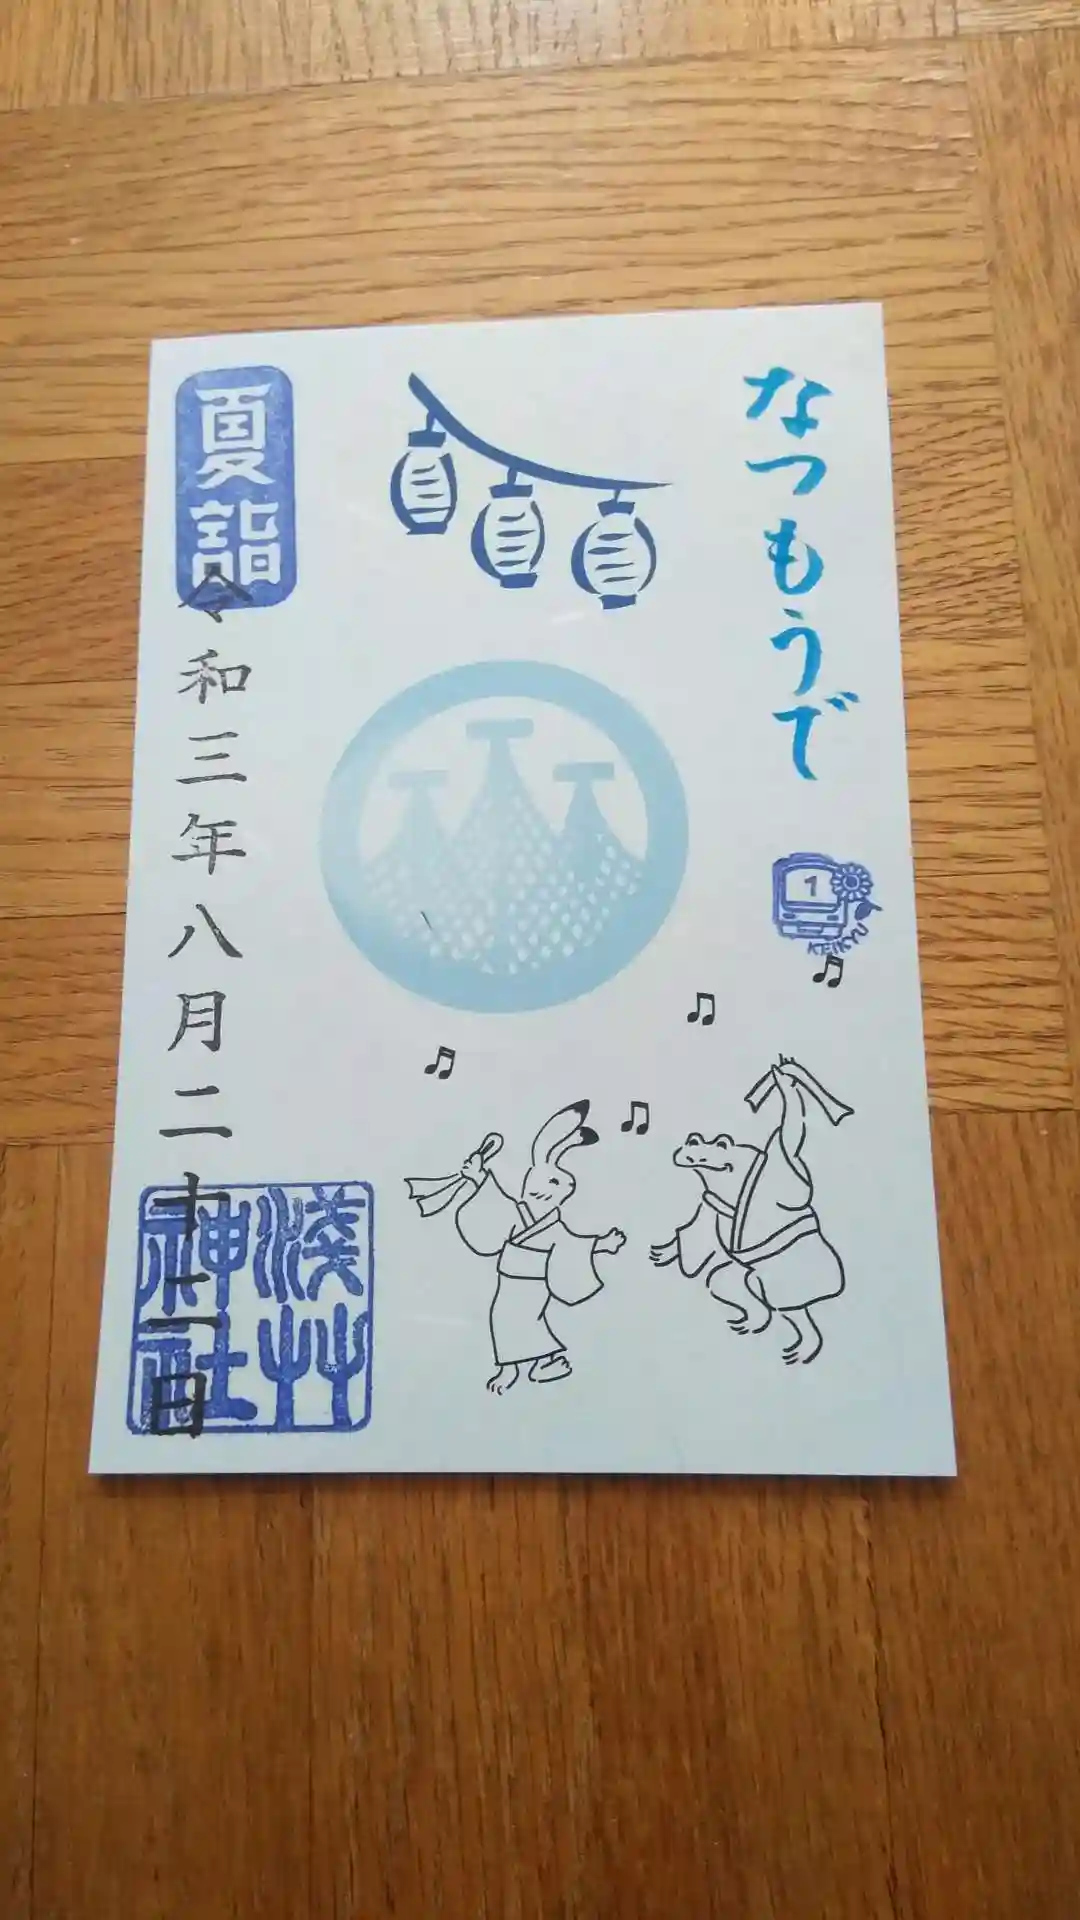 なつもうで
1
KEIKYU
夏詣
令和三年八月二十二日
淺艸
神社